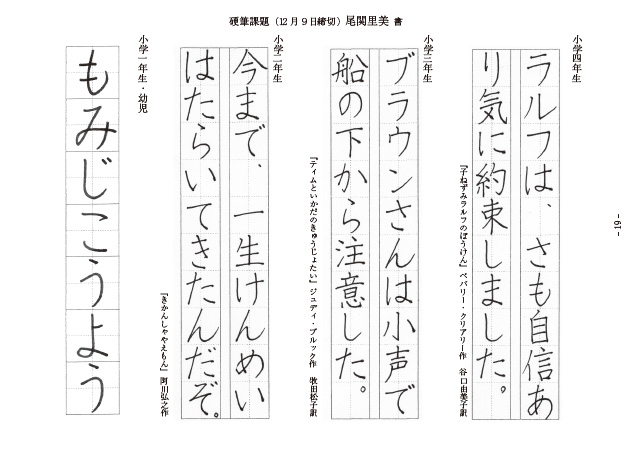 硬筆課題（12月9日締切）尾関里美 書
小学四年生
ラルフは、さも自信あ
り気に約束しました。
『子ねずみラルフのぼうけん』ベバリー・クリアリー作　谷口由美子訳
小学三年生
ブラウンさんは小声で
船の下から注意した。
『ティムといかだのきゅうじょたい』ジュディ・ブルック作　牧田松子訳
小学二年生
今まで、一生けんめい
はたらいてきたんだぞ。
『きかんしゃやえもん』阿川弘之作
小学一年生・幼児
もみじこうよう
- 19 -